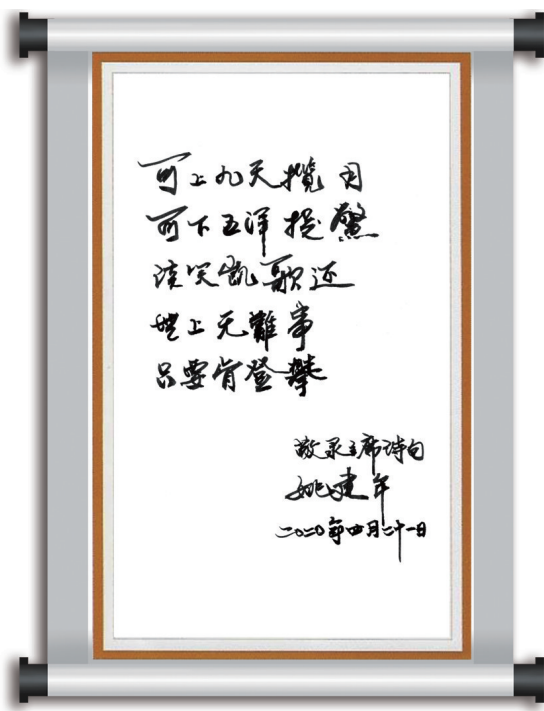 可上九天攬月
可下五洋捉鱉
谈笑凯歌还
世上无難事
只要肯登攀
敬录主席诗句
姚建年
二〇二〇年四月二十一日